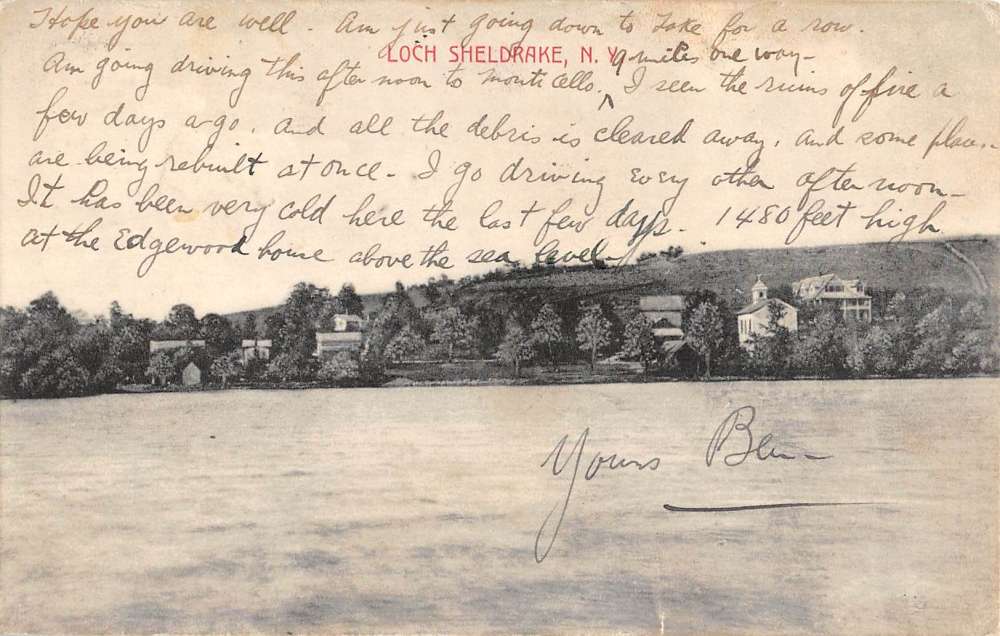 Hope you are well. Am just going down to Lake for a row.
LOCH SHELDRAKE, N. Y.
9 miles one way-
Am going driving this after noon to Monticello. ^ I seen the ruins of fire a
few days ago. and all the debris is cleared away, and some places
are being rebuilt at once- I go driving every other after noon-
It has been very cold here the last few days. 1480 feet high
at the Edgewood house above the sea level-
Yours Ben-